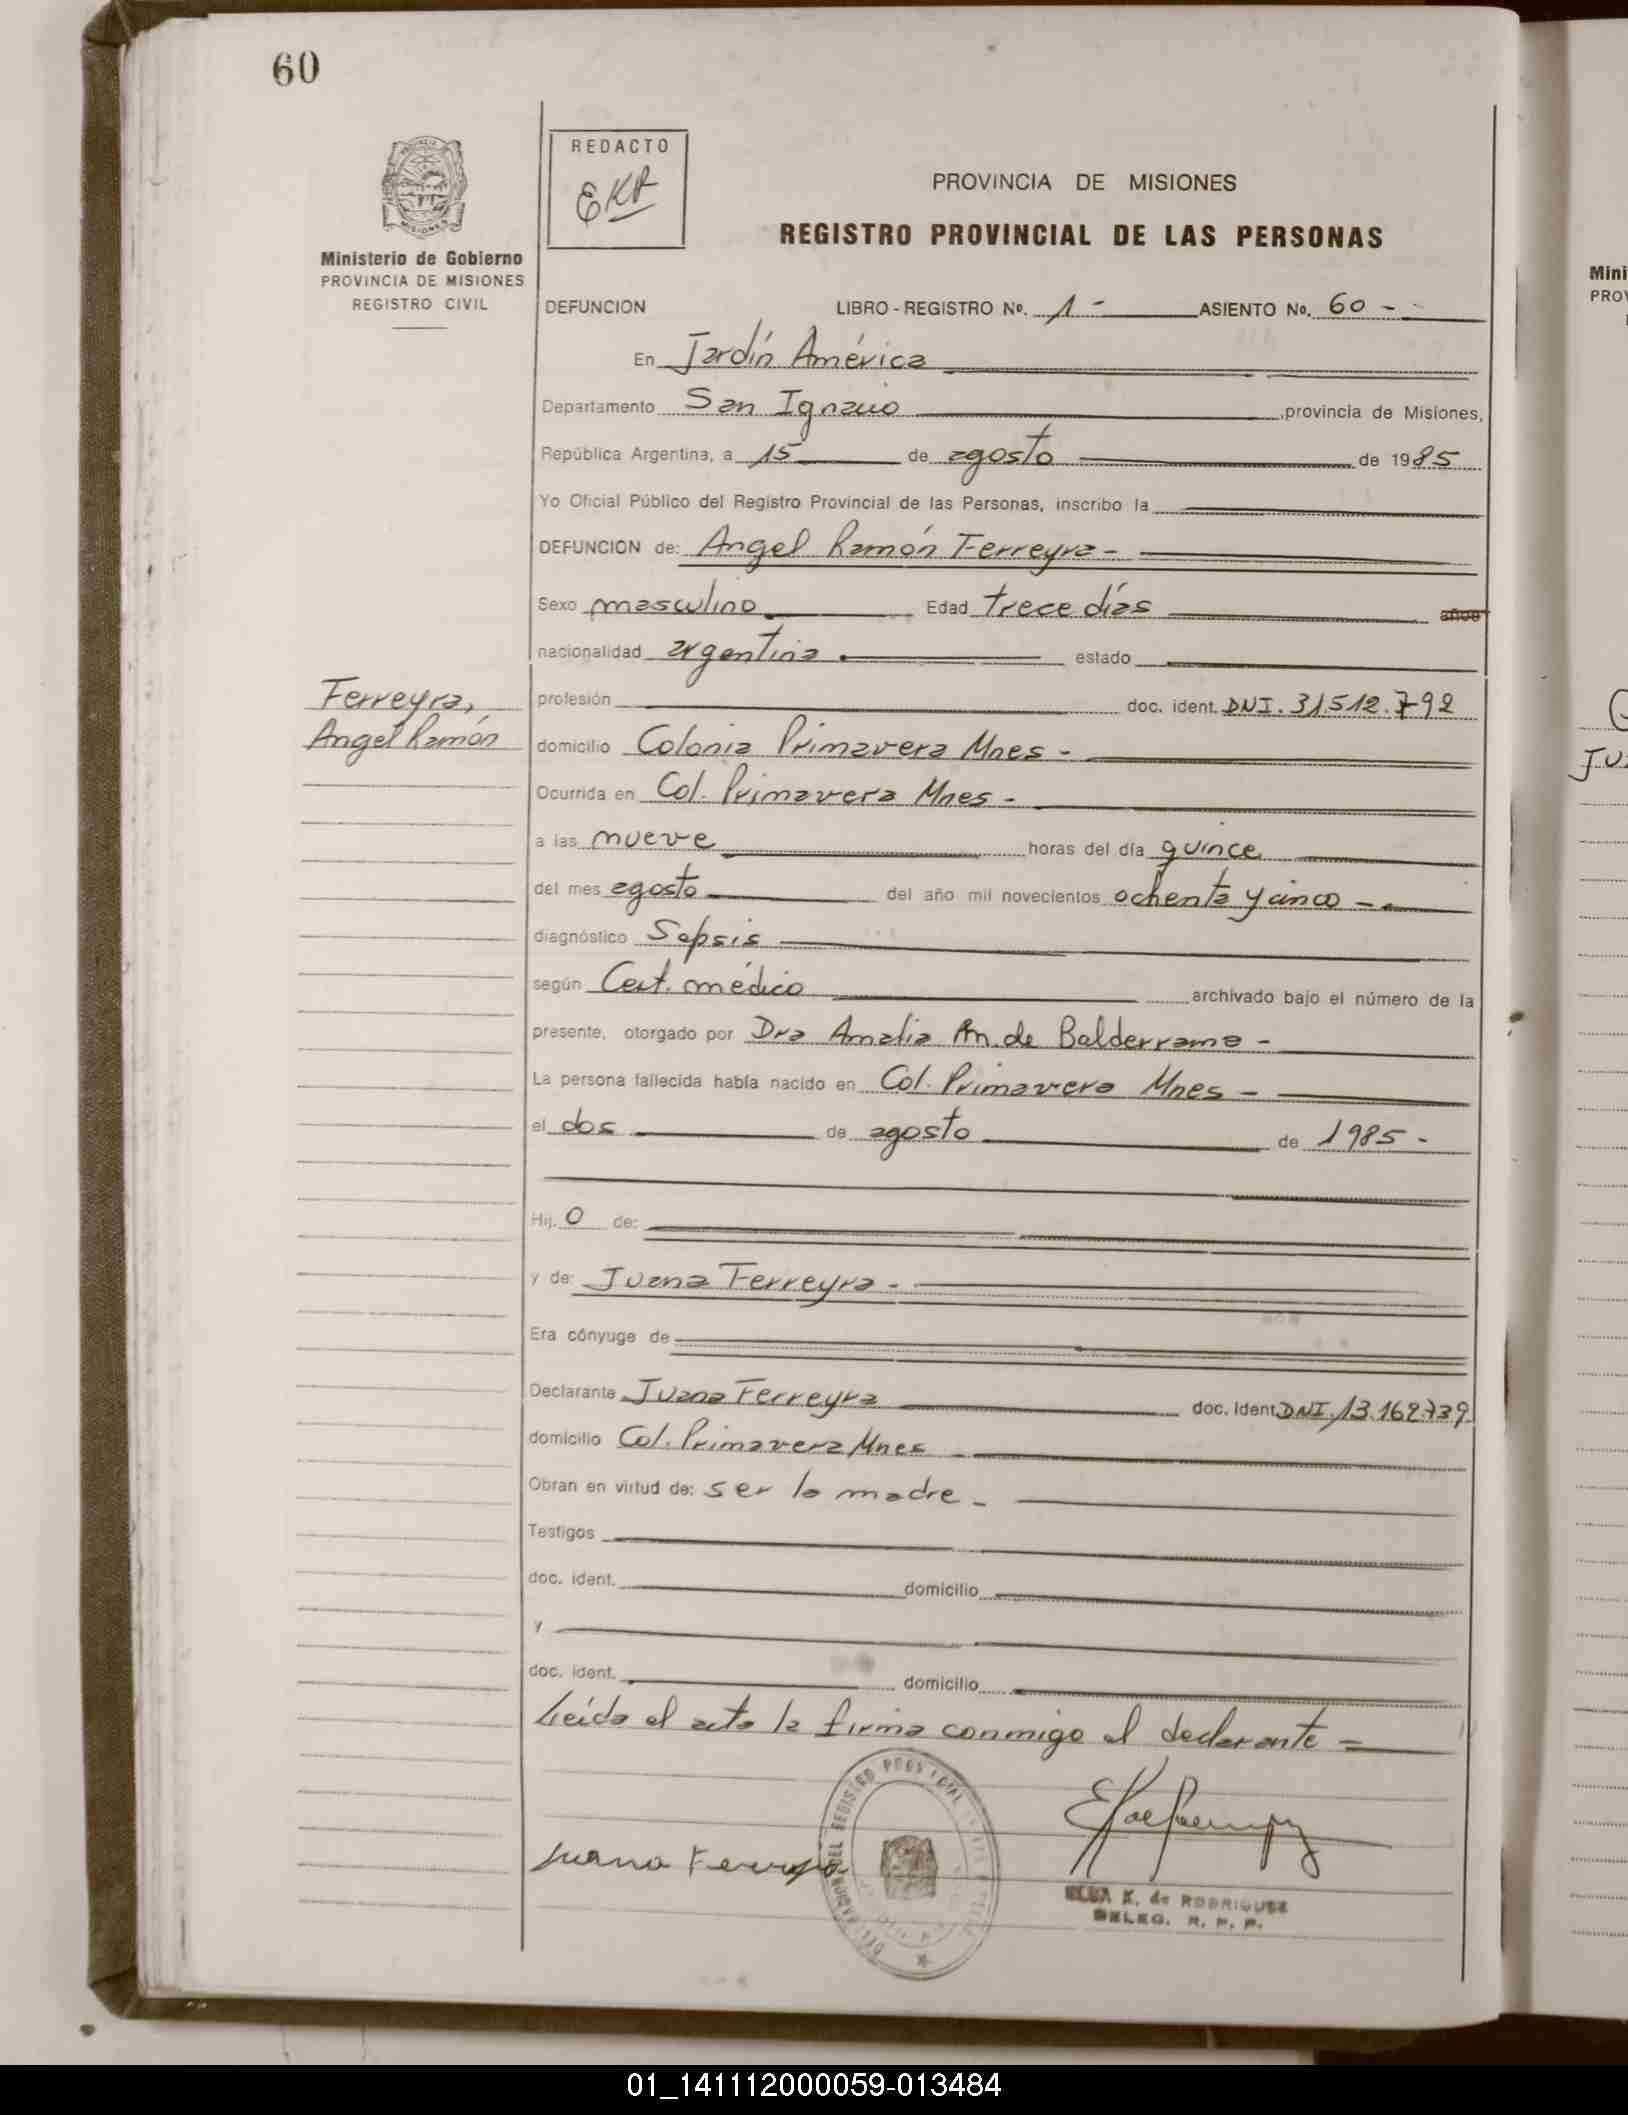 60
REDACTO
EKR
PROVINCIA DE MISIONES
REGISTRO PROVINCIAL DE LAS PERSONAS
Ministerio de Gobierno
PROVINCIA DE MISIONES
REGISTRO CIVIL
DEFUNCION LIBRO - REGISTRO No. 1 - ASIENTO No. 60 -
En Jardín América
Departamento San Ignacio, provincia de Misiones,
República Argentina, a 15 de agosto de 1985
Yo Oficial Público del Registro Provincial de las Personas, inscribo la
DEFUNCION de: Angel Ramón Ferreyra -
Sexo masculino Edad trece días años
nacionalidad argentina estado
Ferreyra,
Angel Ramón
profesión doc. ident. DNI. 31512.792
domicilio Colonia Primavera Mnes -
Ocurrida en Col. Primavera Mnes -
a las nueve horas del día quince
del mes agosto del año mil novecientos ochenta y cinco -
diagnóstico Sepsis
según Cert. médico archivado bajo el número de la
presente, otorgado por Dra Amalia M. de Balderrama -
La persona fallecida había nacido en Col. Primavera Mnes -
el dos de agosto de 1985 -
Hij. o de:
y de: Juana Ferreyra -
Era cónyuge de
Declarante Juana Ferreyra doc. Ident. DNI. 13.162.739
domicilio Col. Primavera Mnes
Obran en virtud de: ser la madre -
Testigos
doc. ident. domicilio
y
doc. ident. domicilio
Leída el acta la firma conmigo el declarante =
Juana Ferreyra
ELSA K. de RODRIGUEZ
DELEG. R. P. P.
Mini
PROV
01_141112000059-013484